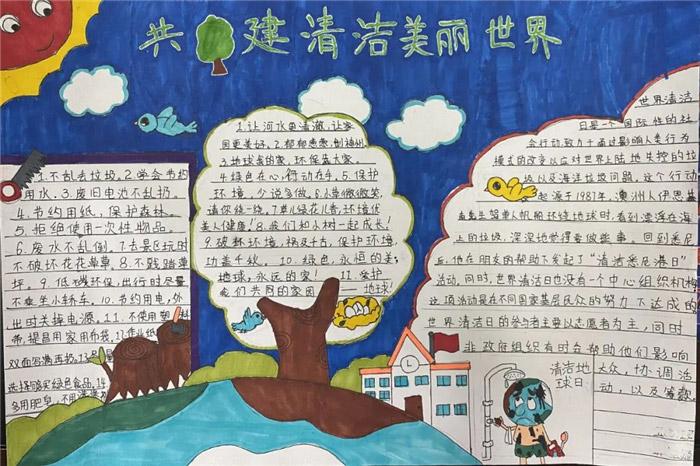 共建清洁美丽世界
1.不乱丢垃圾.2.学会节约
用水.3.废旧电池不乱扔
4.节约用纸,保护森林
5.拒绝使用一次性物品
6.废水不乱倒.7.去景区玩时
不破坏花花草草.8.不践踏草
坪.9.低碳环保,出行时尽量
不乘坐小轿车.10.节约用电,外
出时关掉电源.11.不使用塑料
袋,提昌家用布袋.12.作业纸
双面写满再扔.13
选择购买绿色食品.14
多用肥皂,不用
1.让河水更清澈,让家
园更美好.2.郁郁葱葱,创神州
3.地球我的家,环保靠大家.
4.绿色在心,行动在手.5.保护
环境,少说多做.6.小草微微笑,
请你绕一绕.7.草儿绿花儿香,环境优
美人健康!8.我们和小树一起成长!
9.破坏环境,祸及千古,保护环境,
功美千秋.10.绿色,永恒的美;
地球,永远的家!11.爱护
我们共同的家园——地球!
世界清洁
日是一个国际性的社
会行动致力于通过影响人类行为
模式的改变以应对世界上陆地失控的垃
圾以及海洋垃圾问题,这个行动
起源于1987年,澳洲人伊恩
基南先生驾单人帆船环绕地球时,看到漂浮在海
上的垃圾,深深地觉得要做些事。回到悉尼
后,他在朋友的帮助下发起了"清洁悉尼港日"
活动,同时,世界清洁日也没有一个中心组织机构
这项活动是在不同国家基层民众的努力下达成的
世界清洁日的参与者主要以志愿者为主,同时
非政府组织有时会帮助他们影响
大众,协调活
动,以及筹款
清洁地
球日